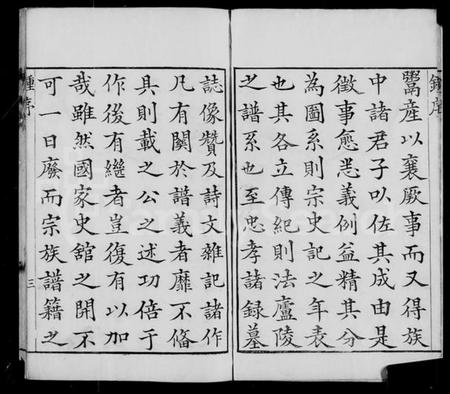 鍾序
鬻產以襄厥事而又得族
中諸君子以佐其成由是
徵事愈恧義例益精其分
為圖系則宗史記之年表
也其各立傳紀則法廬陵
之譜系也至忠孝諸錄墓
誌像贊及詩文雜記諸作
凡有關於譜義者靡不備
具則載之公之述功倍于
作後有繼者豈復有以加
哉雖然國家史舘之開不
可一日廢而宗族譜籍之
鍾序
三